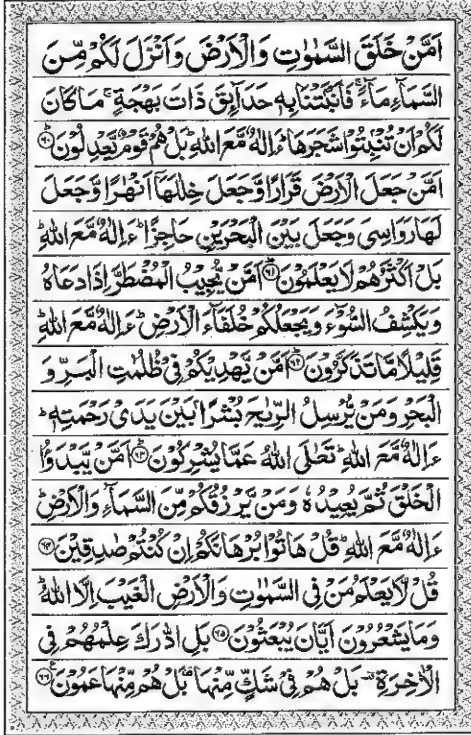 اَمَّنْ خَلَقَ السَّمٰوٰتِ وَالْاَرْضَ وَاَنْزَلَ لَكُمْ مِّنَ
السَّمَآءِ مَآءً ۚ فَاَنْۢبَتْنَا بِهٖ حَدَآئِقَ ذَاتَ بَهْجَةٍ ۚ مَا كَانَ
لَكُمْ اَنْ تُنْۢبِتُوْا شَجَرَهَا ؕ ءَاِلٰهٌ مَّعَ اللّٰهِ ؕ بَلْ هُمْ قَوْمٌ يَّعْدِلُوْنَ ؕ﴿۶۰﴾
اَمَّنْ جَعَلَ الْاَرْضَ قَرَارًا وَّجَعَلَ خِلٰلَهَاۤ اَنْهٰرًا وَّجَعَلَ
لَهَا رَوَاسِيَ وَجَعَلَ بَيْنَ الْبَحْرَيْنِ حَاجِزًا ؕ ءَاِلٰهٌ مَّعَ اللّٰهِ ؕ
بَلْ اَكْثَرُهُمْ لَا يَعْلَمُوْنَ ؕ﴿۶۱﴾ اَمَّنْ يُّجِيْبُ الْمُضْطَرَّ اِذَا دَعَاهُ
وَيَكْشِفُ السُّوْٓءَ وَيَجْعَلُكُمْ خُلَفَآءَ الْاَرْضِ ؕ ءَاِلٰهٌ مَّعَ اللّٰهِ ؕ
قَلِيْلًا مَّا تَذَكَّرُوْنَ ؕ﴿۶۲﴾ اَمَّنْ يَّهْدِيْكُمْ فِيْ ظُلُمٰتِ الْبَرِّ وَ
الْبَحْرِ وَمَنْ يُّرْسِلُ الرِّيٰحَ بُشْرًۢا بَيْنَ يَدَيْ رَحْمَتِهٖ ؕ
ءَاِلٰهٌ مَّعَ اللّٰهِ ؕ تَعٰلَى اللّٰهُ عَمَّا يُشْرِكُوْنَ ؕ﴿۶۳﴾ اَمَّنْ يَّبْدَؤُا
الْخَلْقَ ثُمَّ يُعِيْدُهٗ وَمَنْ يَّرْزُقُكُمْ مِّنَ السَّمَآءِ وَالْاَرْضِ ؕ
ءَاِلٰهٌ مَّعَ اللّٰهِ ؕ قُلْ هَاتُوْا بُرْهَانَكُمْ اِنْ كُنْتُمْ صٰدِقِيْنَ ﴿۶۴﴾
قُلْ لَّا يَعْلَمُ مَنْ فِي السَّمٰوٰتِ وَالْاَرْضِ الْغَيْبَ اِلَّا اللّٰهُ ؕ
وَمَا يَشْعُرُوْنَ اَيَّانَ يُبْعَثُوْنَ ﴿۶۵﴾ بَلِ ادّٰرَكَ عِلْمُهُمْ فِي
الْاٰخِرَةِ ۟ بَلْ هُمْ فِيْ شَكٍّ مِّنْهَا ۟ بَلْ هُمْ مِّنْهَا عَمُوْنَ ﴿۶۶﴾